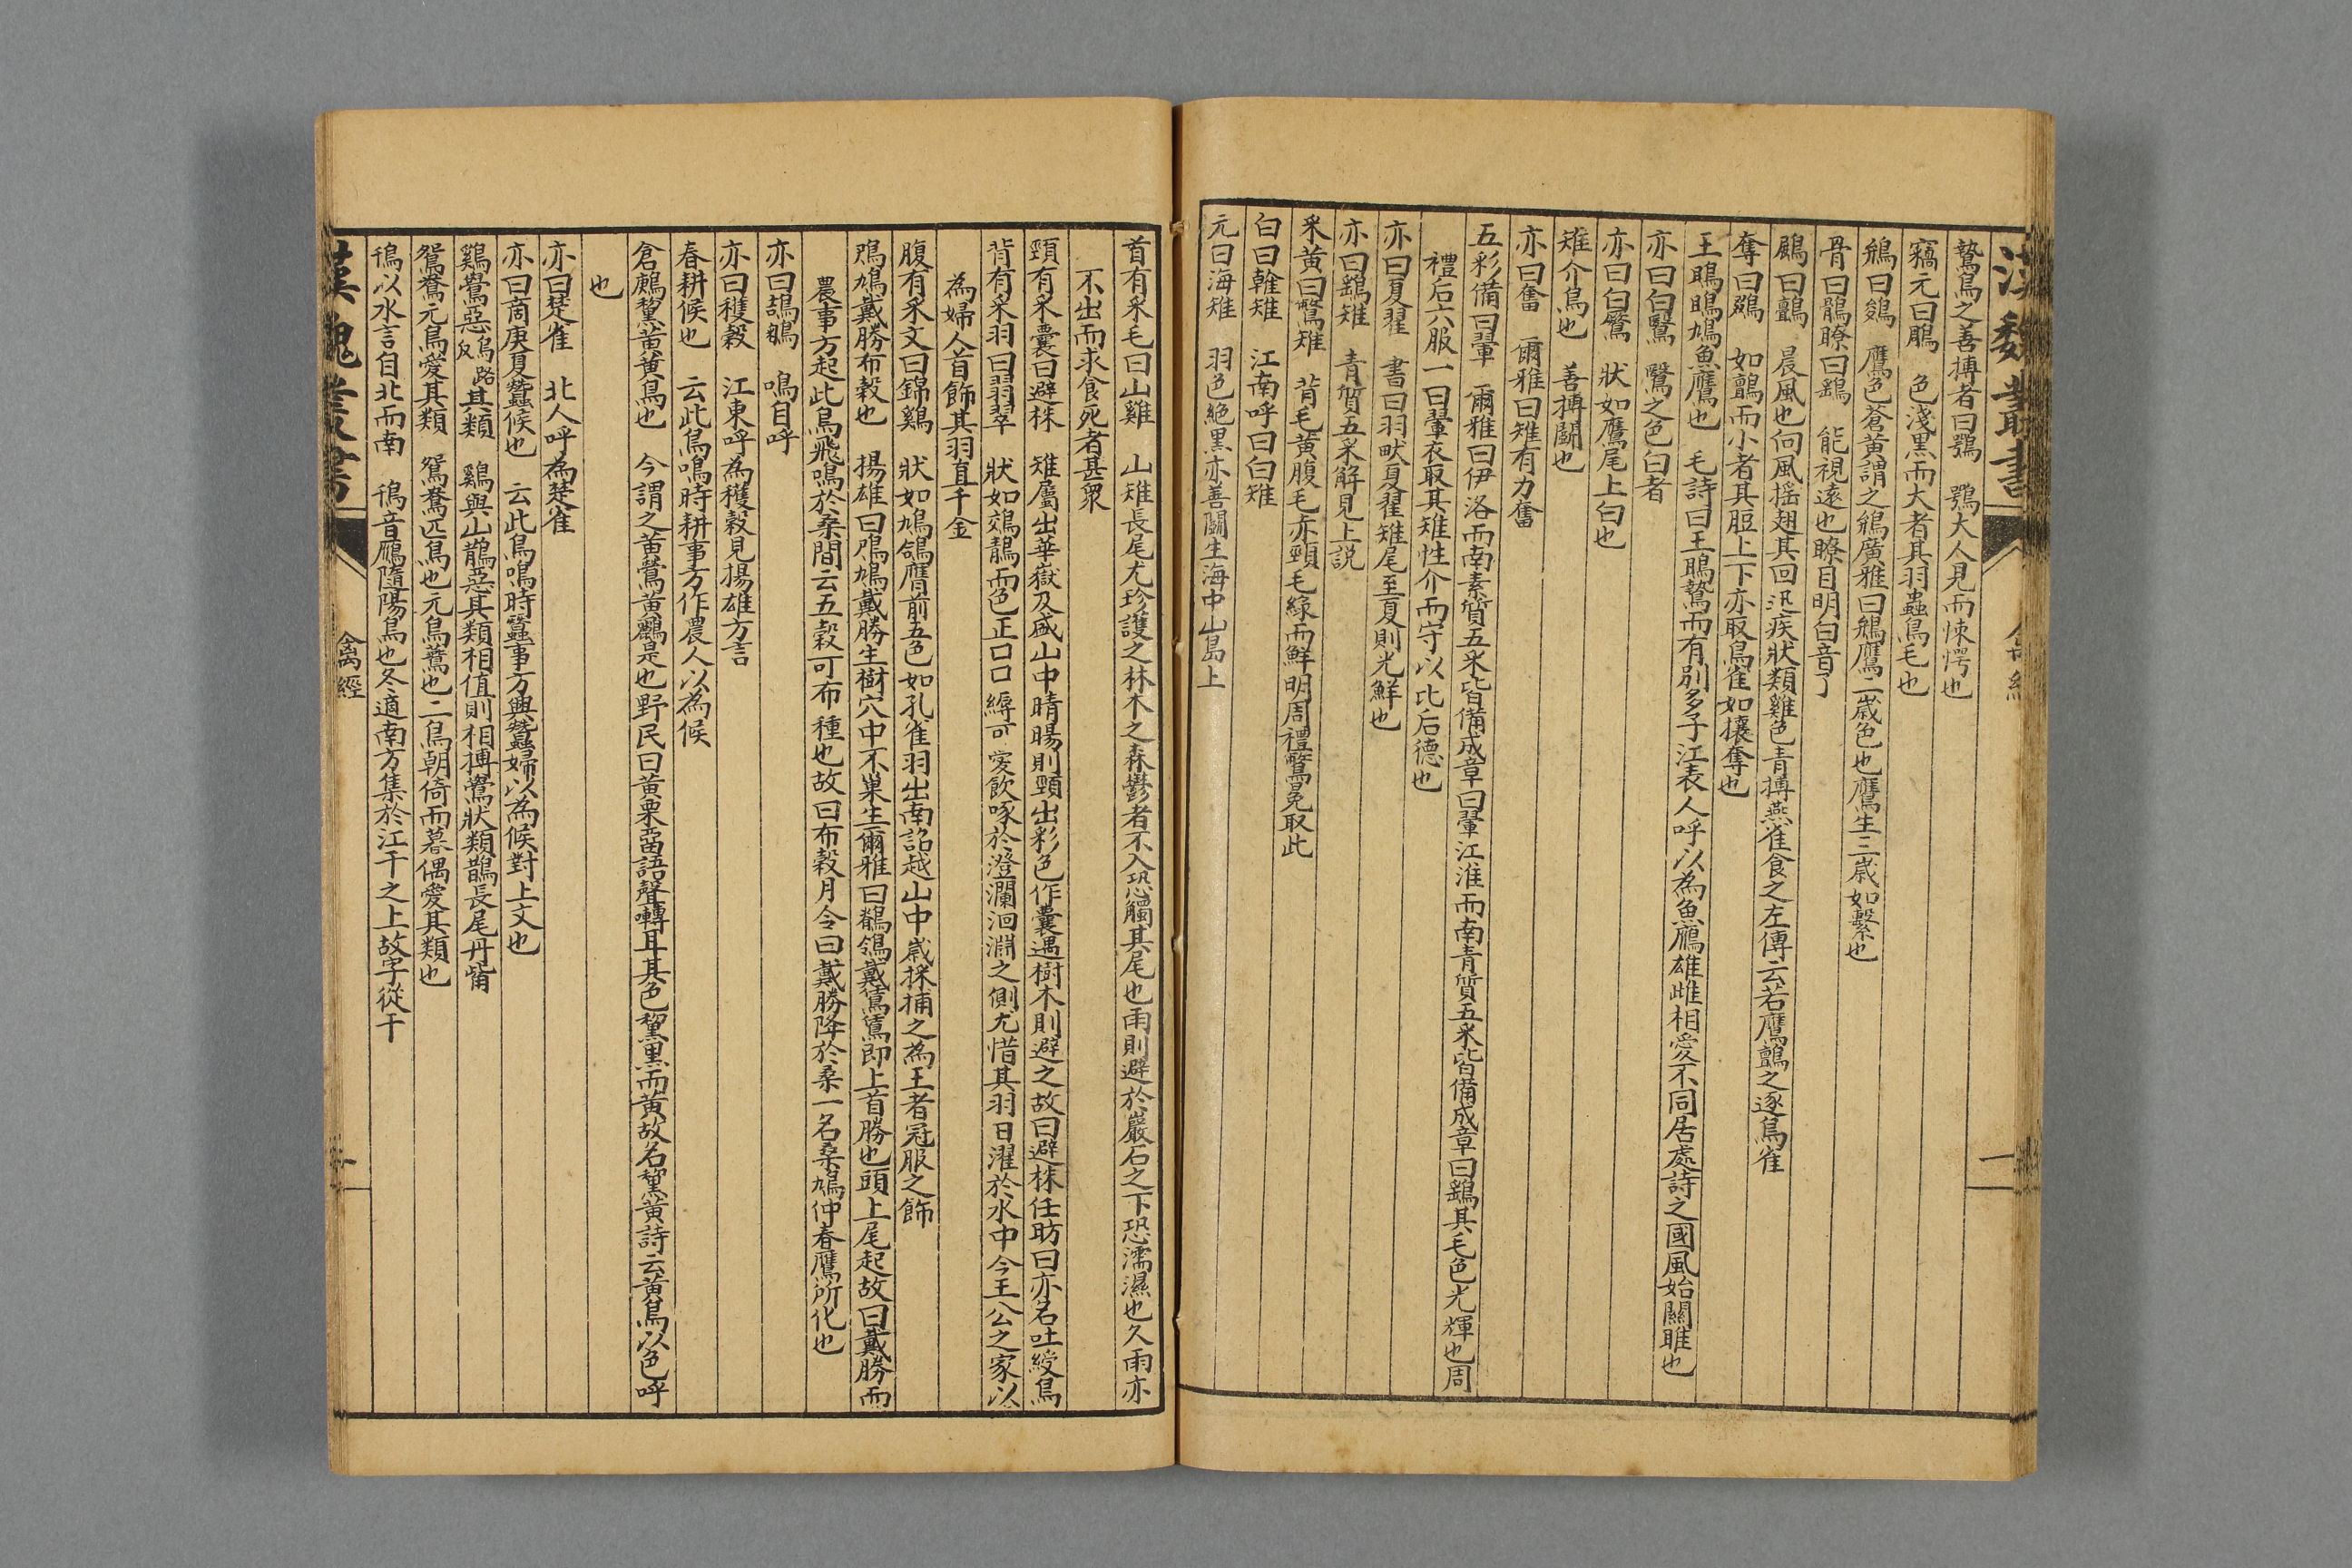 漢魏叢書 禽經 一
鷙鳥之善搏者曰鶚 鶚大人見而悚愕也
竊元曰鵰 色淺黑而大者其羽蟲鳥毛也
鵵曰鷄 鷹色蒼黃謂之鵵廣雅曰鵵鷹二歲色也鷹生三歲如繫也
骨曰鶻瞭曰鷂 能視遠也瞭目明白音了
鸇曰鸇 晨風也向風摇翅其回迅疾狀類雞色青搏燕雀食之左傳云若鷹鸇之逐鳥雀
奪曰鵽 如鸇而小者其脰上下亦取鳥雀如攘奪也
王鴡鴡鳩魚鷹也 毛詩曰王鴡鷙而有別多子江表人呼以為魚鷹雄雌相愛不同居處詩之國風始關雎也
亦曰白鷖 鷖之色白者
亦曰白鷢 狀如鷹尾上白也
雉介鳥也 善搏鬭也
亦曰奮 爾雅曰雉有力奮
五彩備曰翬 爾雅曰伊洛而南素質五采皆備成章曰翬江淮而南青質五采皆備成章曰鷂其毛色光輝也周
禮后六服一曰翬衣取其雉性介而守以比后德也
亦曰夏翟 書曰羽畎夏翟雉尾至夏則光鮮也
亦曰鷂雉 青質五采解見上説
采黃曰鷩雉 背毛黃腹毛赤頸毛綠而鮮明周禮鷩冕取此
白曰鶾雉 江南呼曰白雉
元曰海雉 羽色絕黑亦善鬭生海中山島上
首有采毛曰山雞 山雉長尾尤珍護之林木之森鬱者不入恐觸其尾也雨則避於巖石之下恐濡濕也久雨亦
不出而求食死者甚衆
頸有采囊曰避株 雉屬出華嶽及盛山中晴暘則頸出彩色作囊遇樹木則避之故曰避株任昉曰亦名吐綬鳥
背有采羽曰翡翠 狀如鵁鶄而色正口口縟可愛飲啄於澄瀾洄淵之側尤惜其羽日濯於水中今王公之家以
為婦人首飾其羽直千金
腹有采文曰錦鷄 狀如鳩鴿膺前五色如孔雀羽出南詔越山中歲採捕之為王者冠服之飾
鳲鳩戴勝布穀也 揚雄曰鳲鳩戴勝生樹穴中不巢生爾雅曰鶺鴒戴鵀鵀即上首勝也頭上尾起故曰戴勝而
農事方起此鳥飛鳴於桑間云五穀可布種也故曰布穀月令曰戴勝降於桑一名桑鳩仲春鷹所化也
亦曰鴶鵴 鳴自呼
亦曰穫穀 江東呼為穫穀見揚雄方言
春耕候也 云此鳥鳴時耕事方作農人以為候
倉鶊黧黃黃鳥也 今謂之黃鶯黃鸝是也野民曰黃栗畱語聲轉耳其色黧黑而黃故名黧黃詩云黃鳥以色呼
也
亦曰楚雀 北人呼為楚雀
亦曰商庚夏蠶候也 云此鳥鳴時蠶事方興蠶婦以為候對上文也
鷄鷽惡烏路反其類 鷄與山鵲惡其類相值則相搏鷽狀類鵲長尾丹觜
鴛鴦元鳥愛其類 鴛鴦匹鳥也元鳥鷰也二鳥朝倚而暮偶愛其類也
鳱以水言自北而南 鳱音鴈隨陽鳥也冬適南方集於江干之上故字從干
漢魏叢書 禽經